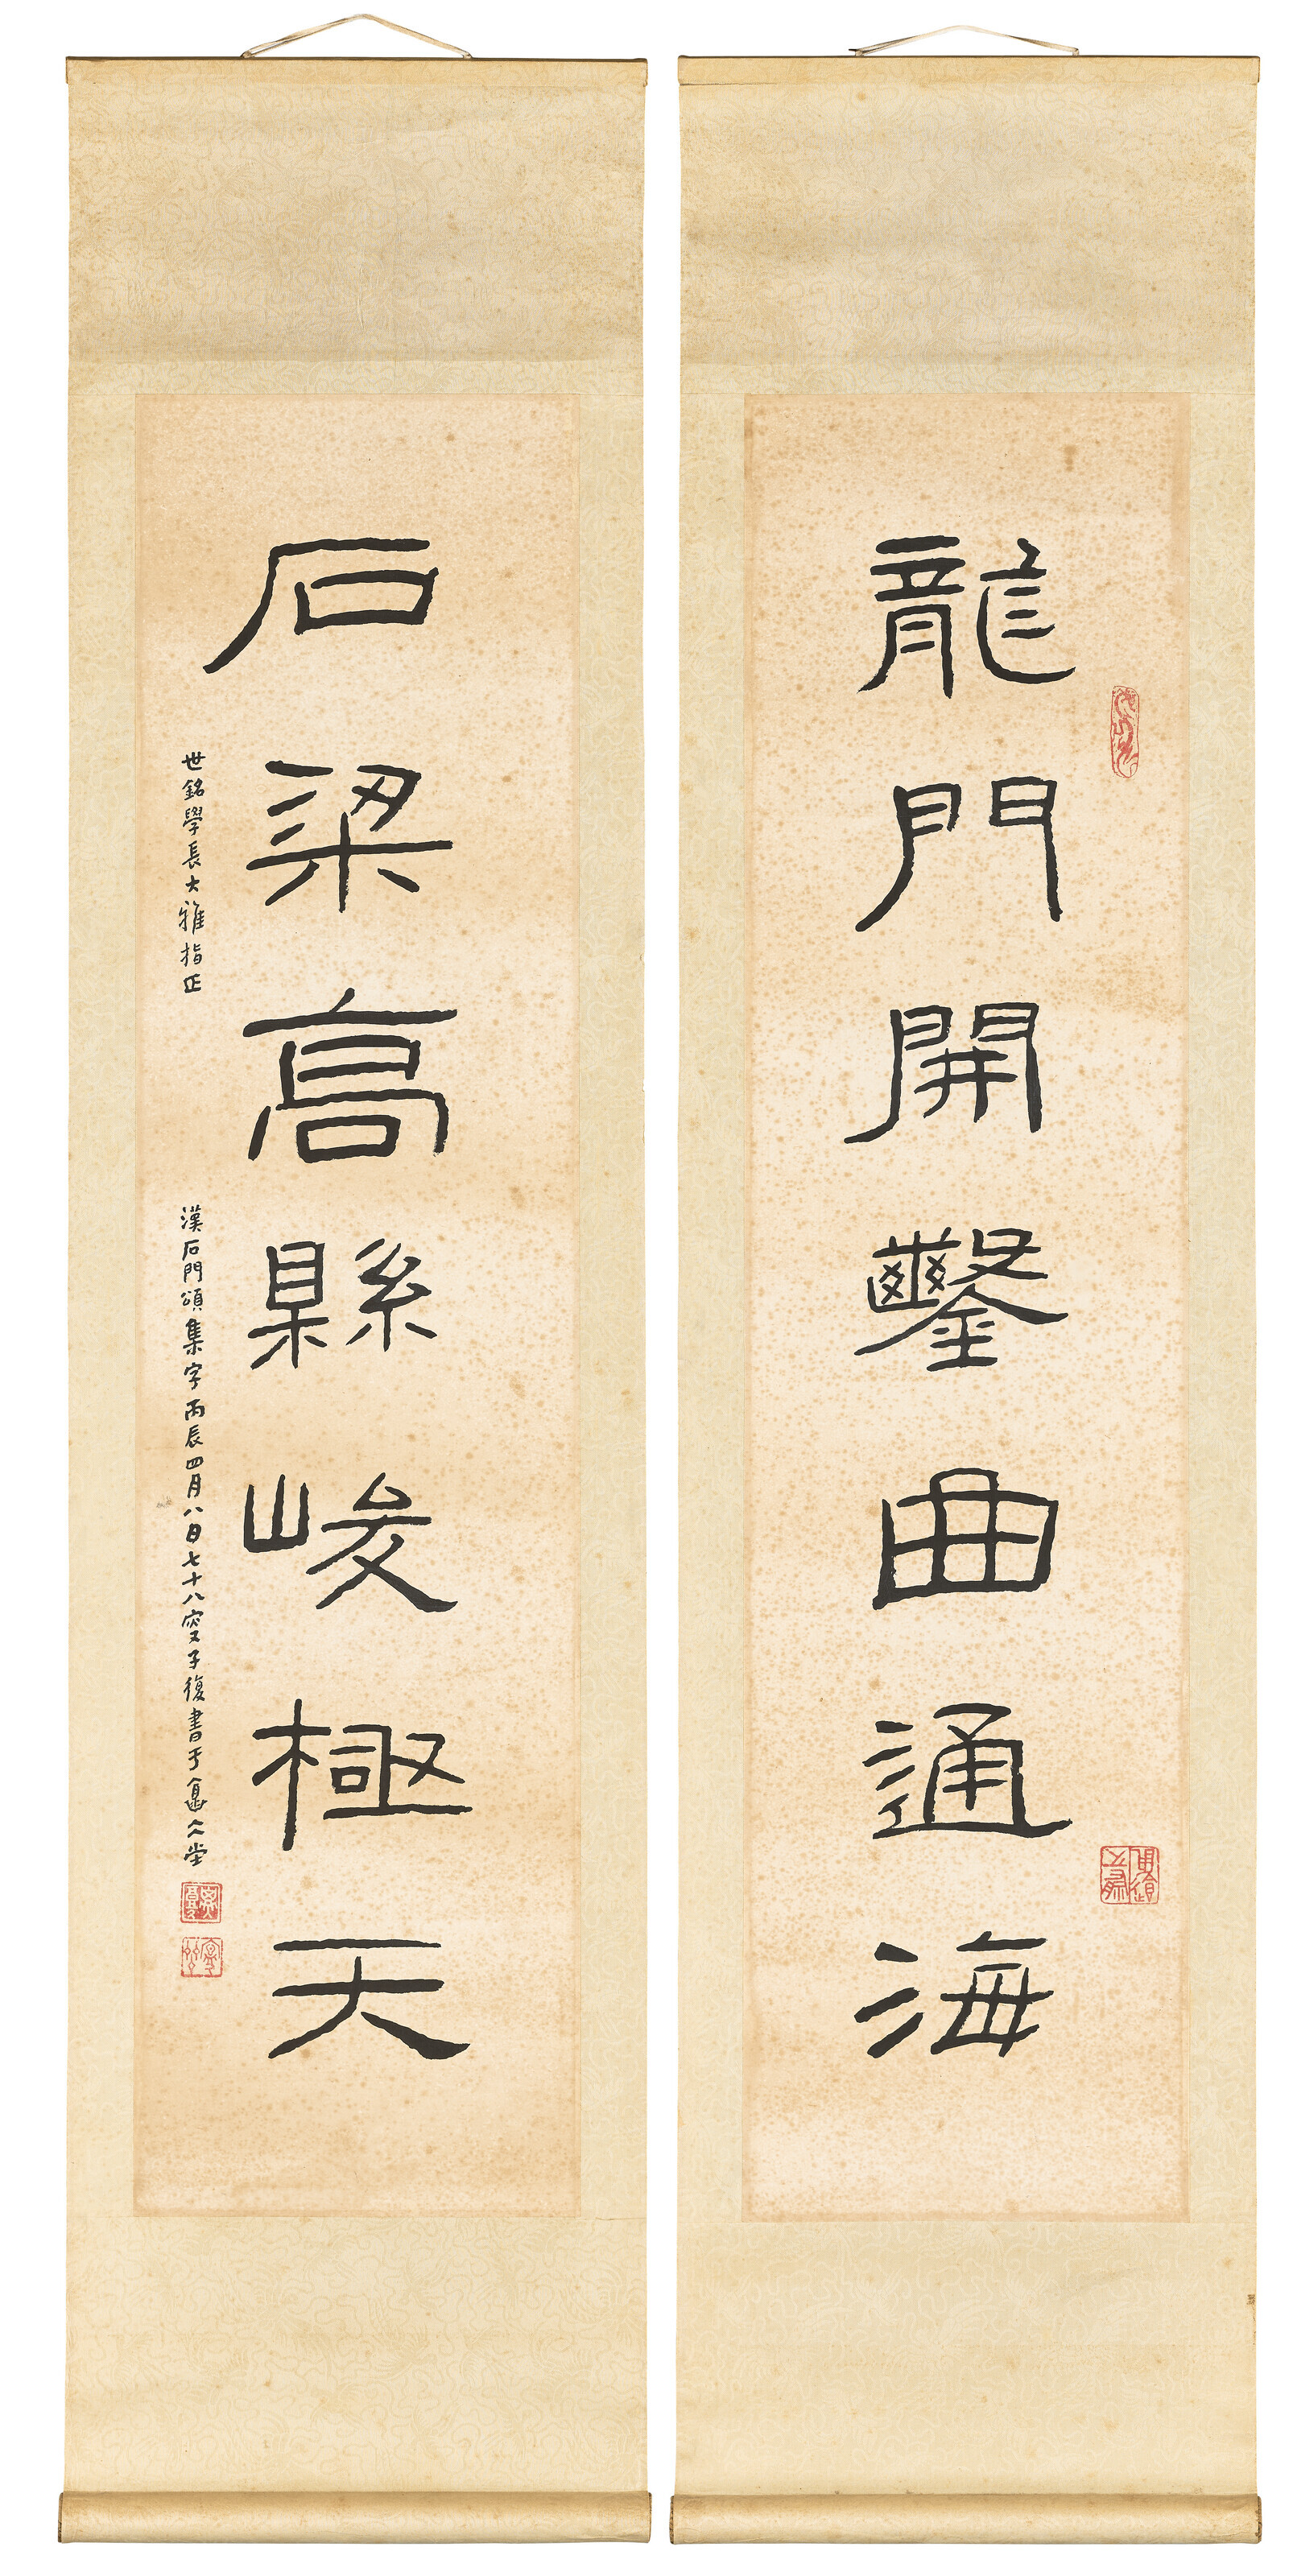 龍門開鑿曲通海
石梁高縣峻極天
世銘學長大雅指正
漢石門頌集字丙辰四月八日七十八叟子復書于念仁堂